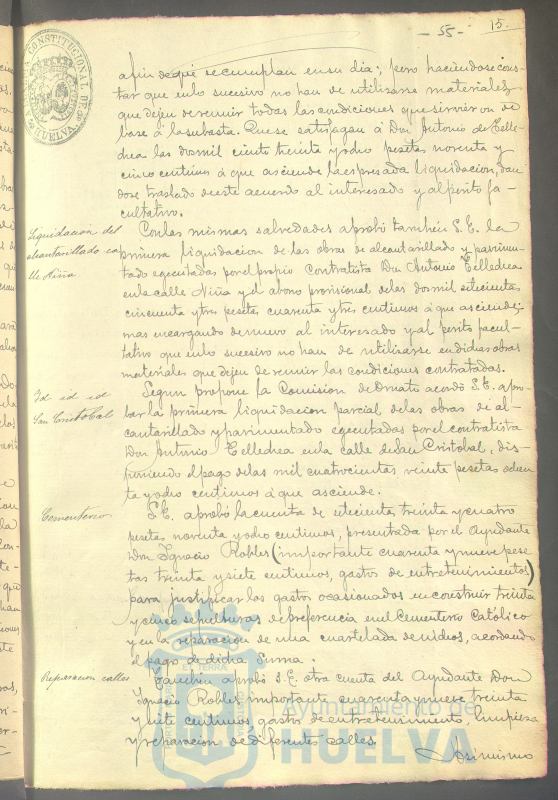 - 55 - 15.
ALCALDIA CONSTITUCIONAL DE HUELVA
a fin de que se cumplan en su dia; pero haciendose cons-
tar que en lo sucesivo no han de utilizarse materiales
que dejen de reunir todas las condiciones que sirvieron de
base á la subasta. Que se satisfagan á Don Antonio de Telle-
chea las dos mil ciento treinta y ocho pesetas noventa y
cinco centimos á que asciende la espresada liquidacion, dan
dose traslado de este acuerdo al interesado y al perito fa-
cultativo.
Liquidacion del
alcantarillado ca
lle Niña
Con las mismas salvedades aprobó tambien S. E. la
primera liquidacion de las obras de alcantarillado y pavimen-
tado egecutadas por el propio Contratista Don Antonio Tellechea
en la calle Niña y el abono provisional de las dos mil setecientas
cincuenta y tres pesetas cuarenta y tres centimos á que asciende;
mas encargando de nuevo al interesado y al perito facul-
tativo que en lo sucesivo no han de utilizarse en dichas obras
materiales que dejen de reunir las condiciones contratadas.
Id id id
San Cristobal
Segun propone la Comision de Ornato acordó S. E. apro-
bar la primera liquidacion parcial de las obras de al-
cantarillado y pavimentado egecutadas por el contratista
Don Antonio Tellechea en la calle de San Cristobal, dis-
poniendo el pago de las mil cuatrocientas veinte pesetas ochen-
ta y ocho centimos á que asciende.
Cementerio
S. E. aprobó la cuenta de setecientas treinta y cuatro
pesetas noventa y ocho centimos, presentada por el Ayudante
Don Ignacio Robles (importante cuarenta y nueve pese
tas treinta y siete centimos, gastos de entretenimientos)
para justificar los gastos ocasionados en construir treinta
y cinco sepulturas de preferencia en el Cementerio Católico
y en la reparacion de una cuartelada de nichos, acordando
el pago de dicha suma.
Reparacion calles
Tambien aprobó S. E. otra cuenta del Ayudante Don
Ignacio Robles, importante cuarenta y nueve treinta
y siete centimos, gastos de entretenimiento, limpieza
y reparacion de diferentes calles.
Asimismo
Ayuntamiento de
HUELVA